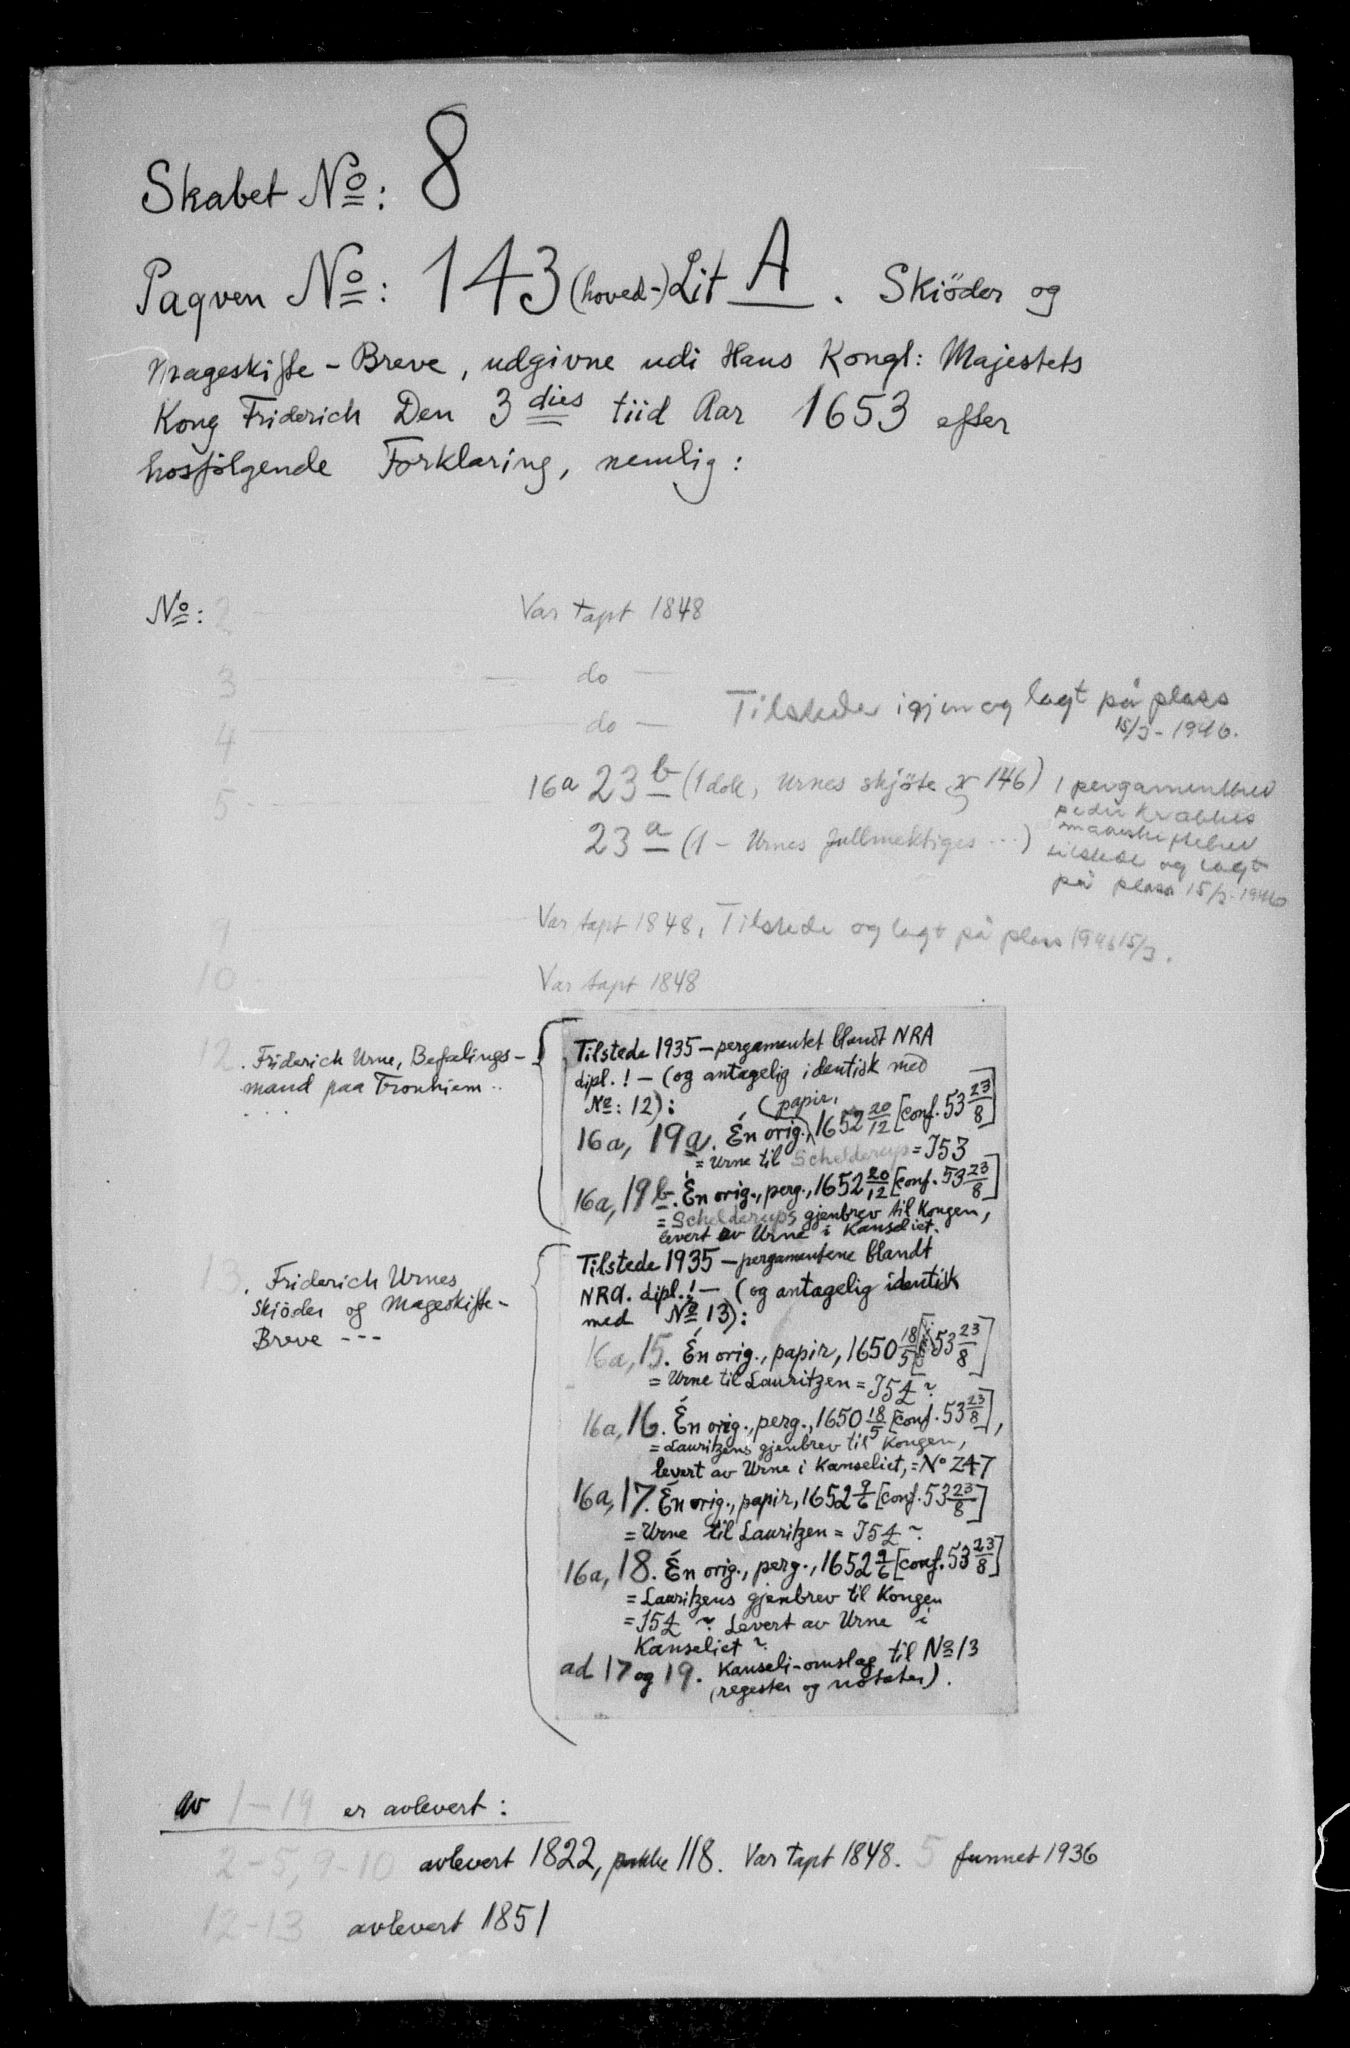 Skabet No: 8
Paqven No: 143 (hoved-) Lit A. Skiöder og
Mageskifte-Breve, udgivne udi Hans Kongl: Majestets
Kong Friderich Den 3 dies tiid Aar 1653 efter
hosfølgende Forklaring, nemlig:
No: 2 Var tapt 1848
3 do
4 do Tilstede igjen og lagt på plass
15/3-1946.
5 16a 23 b (1 dok, Urnes skjöte 146) 1 pergamentbrev
23 a (1 - Urnes fullmektiges ...)
tilstede og lagt
på plass 15/3-1946
9 Var tapt 1848, Tilstede og lagt på plass 1946 15/3.
10 Var tapt 1848
12. Friderich Urne, Befalings-
mand paa Tronhiem..
Tilstede 1935 - pergamentet blandt NRA
dipl.! - (og antagelig identisk med
No: 12):
16a, 19a. Én orig., papir, 1652 20/12 [conf. 53 23/8]
= Urne til Schelderup = J53
16a, 19b. Én orig., perg., 1652 20/12 [conf. 53 23/8]
= Schelderups gjenbrev til Kongen,
levert av Urne i Kanseliet.
13. Friderich Urnes
Skiöder og Mageskifte-
Breve ---
Tilstede 1935 - pergamentene blandt
NRA. dipl.! - (og antagelig identisk
med No 13):
16a, 15. Én orig., papir, 1650 18/5 [conf. 53 23/8]
= Urne til Lauritzen = J54 ?
16a, 16. Én orig., perg., 1650 18/5 [conf. 53 23/8],
= Lauritzens gjenbrev til Kongen,
levert av Urne i Kanseliet, = No 247
16a, 17. Én orig., papir, 1652 9/6 [conf. 53 23/8]
= Urne til Lauritzen = J54 ?
16a, 18. Én orig., perg., 1652 9/6 [conf. 53 23/8]
= Lauritzens gjenbrev til Kongen
= J54 ? Levert av Urne i
Kanseliet ?
ad 17 og 19. Kanseli-omslag til No 13
(regester og notater).
Av 1-19 er avlevert:
2-5, 9-10 avlevert 1822, pakke 118. Var tapt 1848. 5 funnet 1936
12-13 avlevert 1851